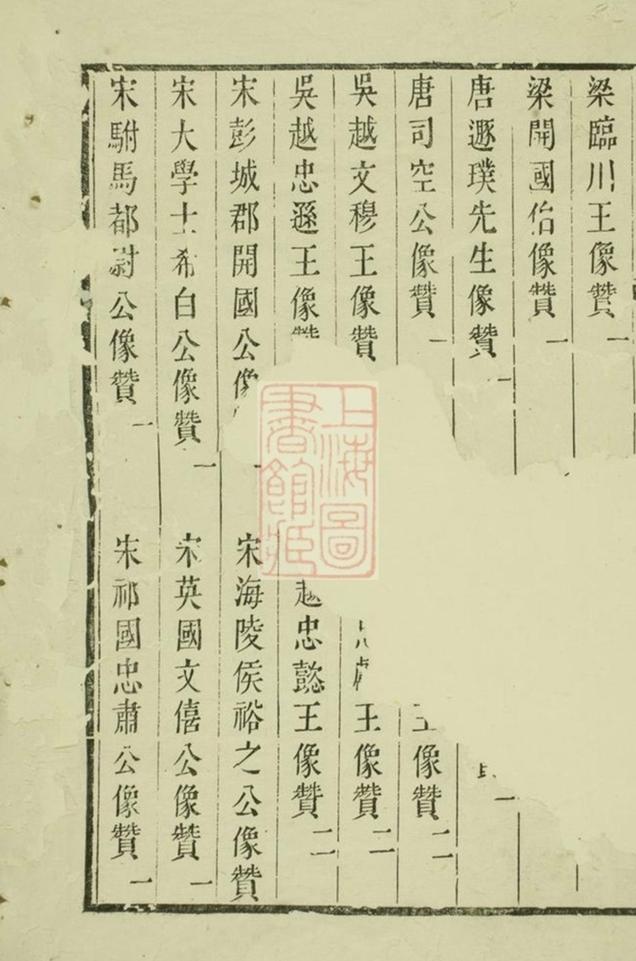 梁臨川王像贊
梁開國伯像贊 一
唐遯璞先生像贊 一
唐司空公像贊 一
王像贊 二
吳越文穆王像贊
王像贊 二
吳越忠遜王像贊
越忠懿王像贊 二
宋彭城郡開國公像
宋海陵侯裕之公像贊
宋大學士希白公像贊 一
宋英國文僖公像贊 一
宋駙馬都尉公像贊 一
宋祁國忠肅公像贊 一
上海圖書館藏